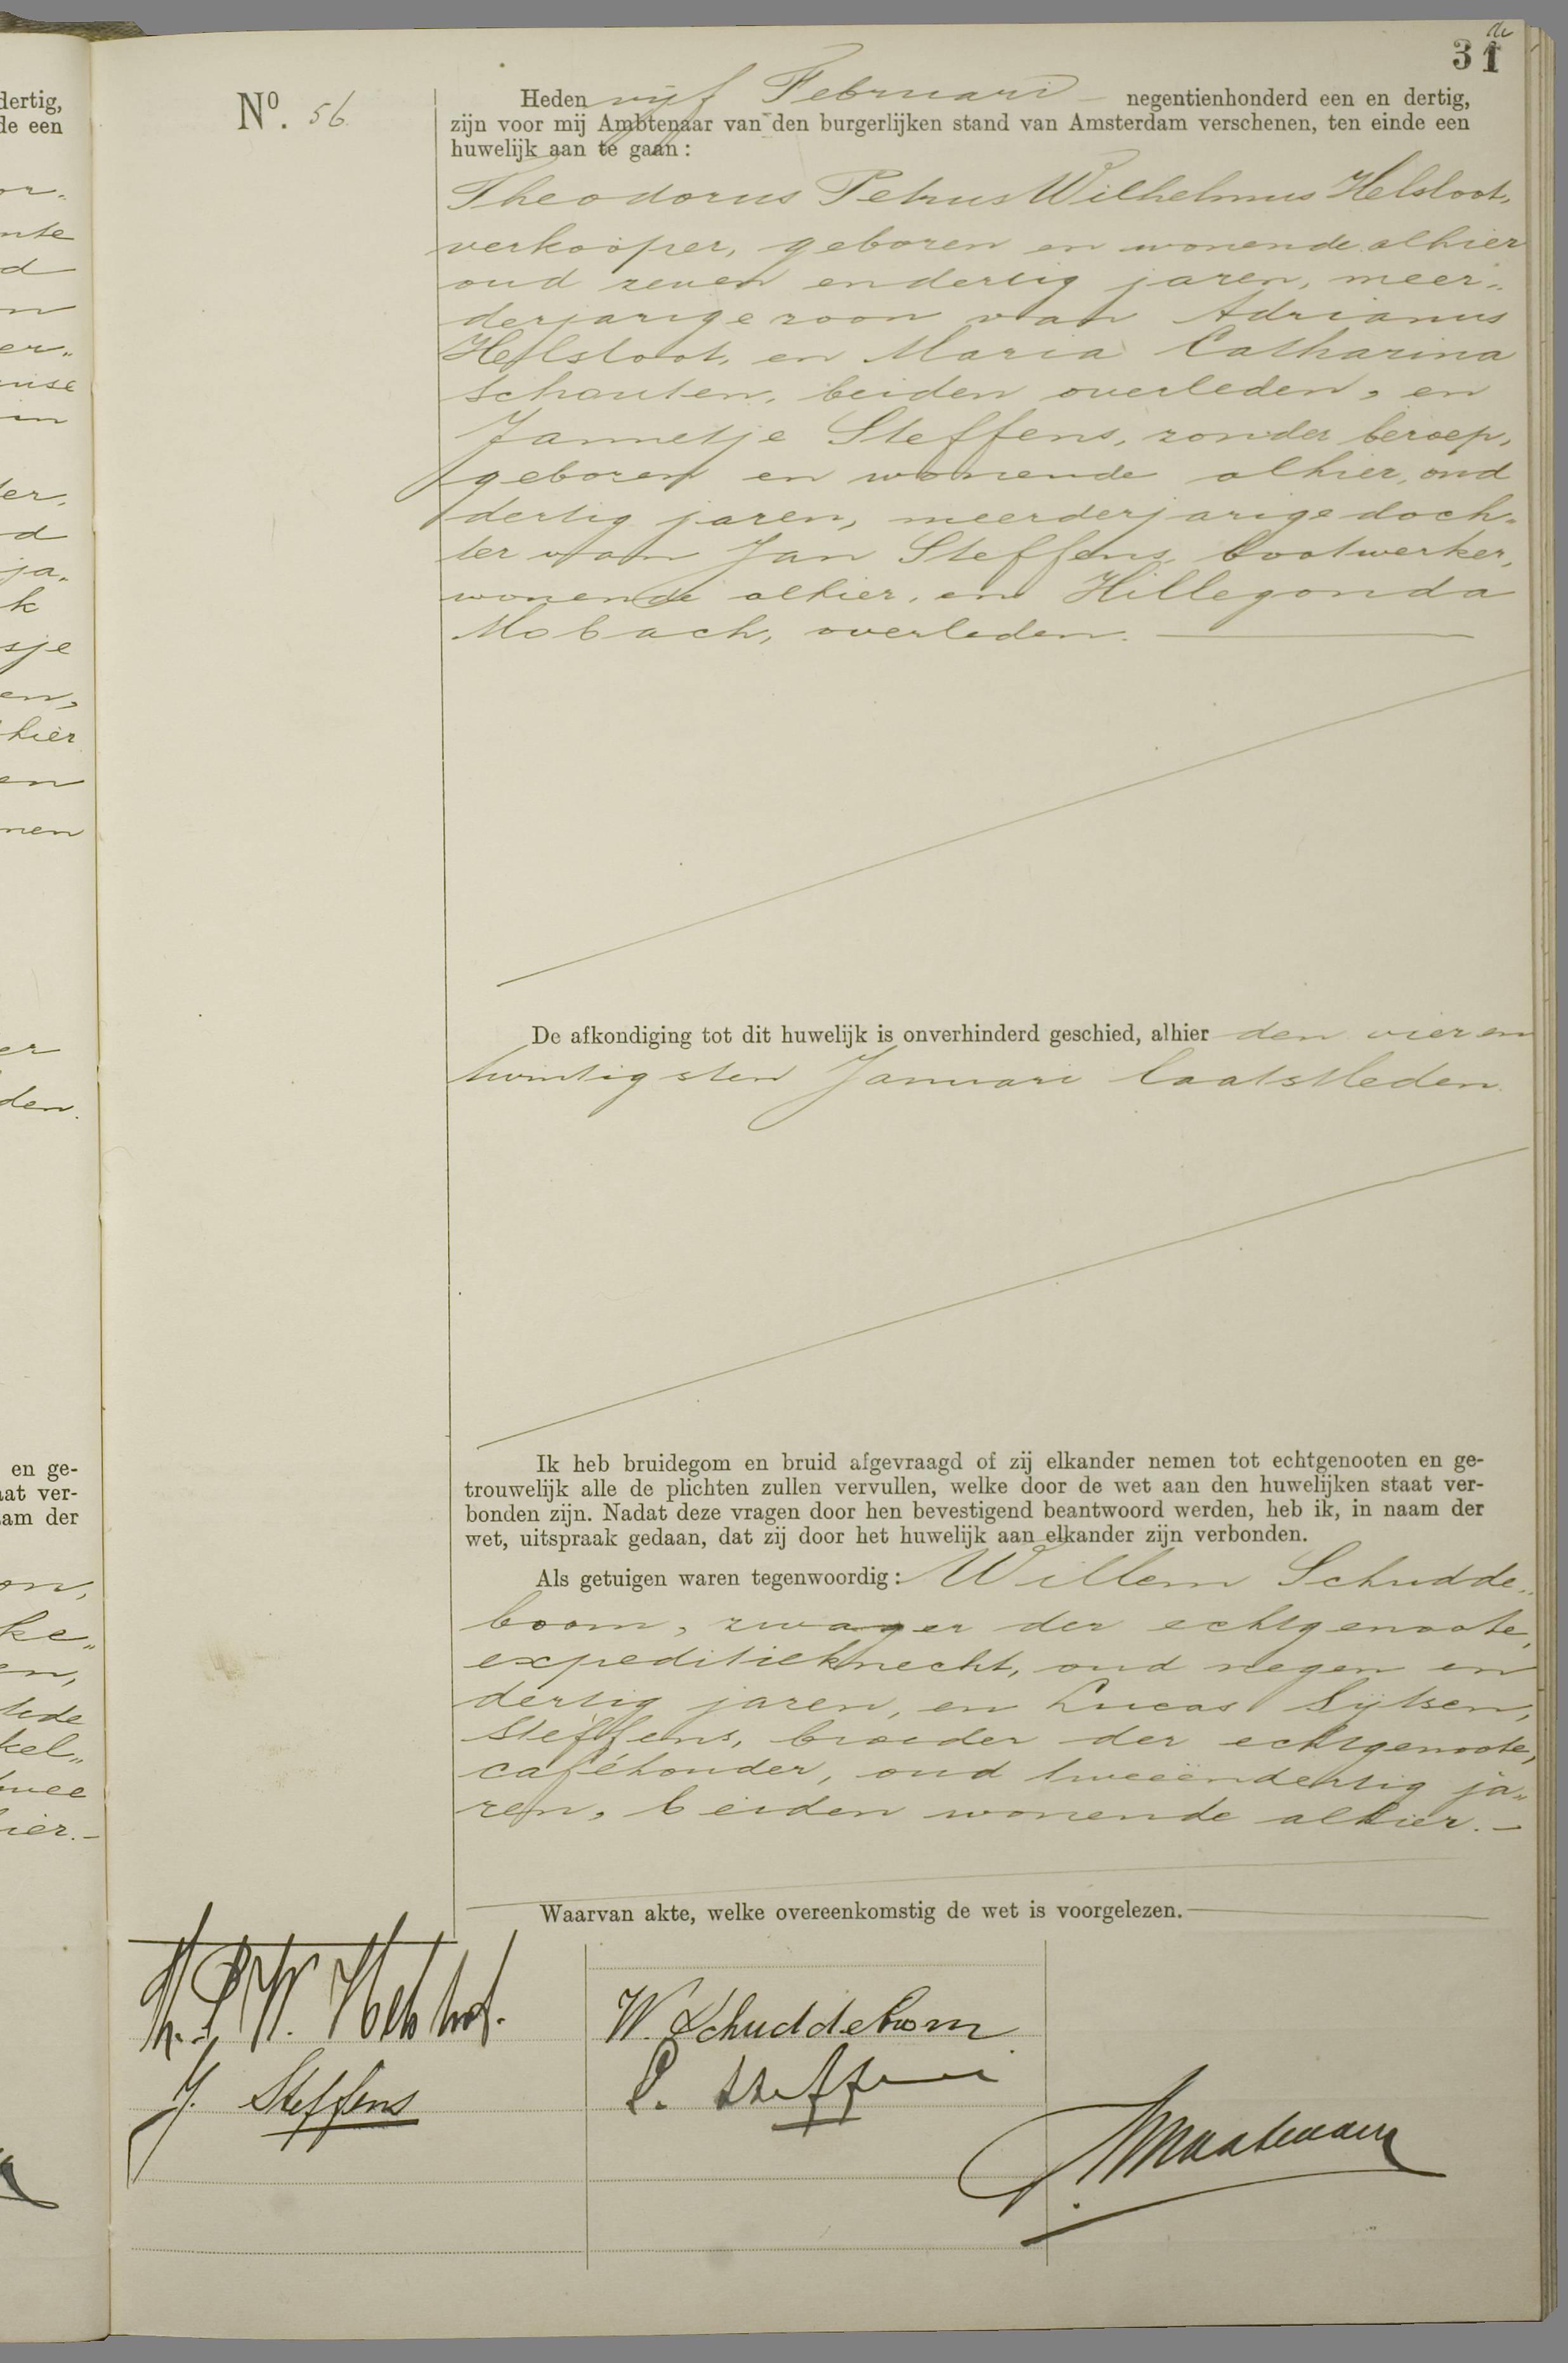 31
dertig,
de een
or„
nte
d
n
er„
in
ler,
d
ja„
k
sje
en,
hier
en
nen
er
den.
en ge-
aat ver-
aam der
on,
ke„
en,
kel„
ier.-
Nº. 56.
Heden vijf Februari - negentienhonderd een en dertig,
zijn voor mij Ambtenaar van den burgerlijken stand van Amsterdam verschenen, ten einde een
huwelijk aan te gaan:
Theodorus Petrus Wilhelmus Helsloot,
verkooper, geboren en wonende alhier
oud zeven en dertig jaren, meer„
derjarige zoon van Adrianus
Helsloot, en Maria Catharina
Schouten, beiden overleden, en
Jannetje Steffens, zonder beroep,
geboren en wonende alhier, oud
dertig jaren, meerderjarige doch„
ter van Jan Steffens, bootwerker,
wonende alhier, en Hillegonda
Mobach, overleden.
De afkondiging tot dit huwelijk is onverhinderd geschied, alhier den vier en
twintigsten Januari laatstleden.
Ik heb bruidegom en bruid afgevraagd of zij elkander nemen tot echtgenooten en ge-
trouwelijk alle de plichten zullen vervullen, welke door de wet aan den huwelijken staat ver-
bonden zijn. Nadat deze vragen door hen bevestigend beantwoord werden, heb ik, in naam der
wet, uitspraak gedaan, dat zij door het huwelijk aan elkander zijn verbonden.
Als getuigen waren tegenwoordig: Willem Schudde„
boom, zwager der echtgenoote,
expeditieknecht, oud negen en
dertig jaren, en Lucas Sijtsen,
Steffens, broeder der echtgenoote,
caféhouder, oud tweeëndertig ja„
ren, beiden wonende alhier.-
Waarvan akte, welke overeenkomstig de wet is voorgelezen.
Th. P. W. Helsloot.
J. Steffens
W. Schuddeboom
L. Steffens